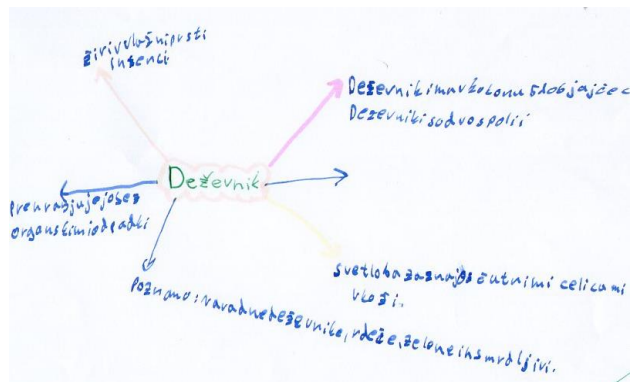 živi v vlažni prsti
in senci
Deževniki ima v kokonu 5 do 6 jajčec
Deževniki so dvospolii
Deževnik
prehranjujejo se z
organskimi odpadki
svetloba zaznajo s čutnimi celicami
v koži.
poznamo: navadne deževnike, rdeče, zelene in smrdljivi.